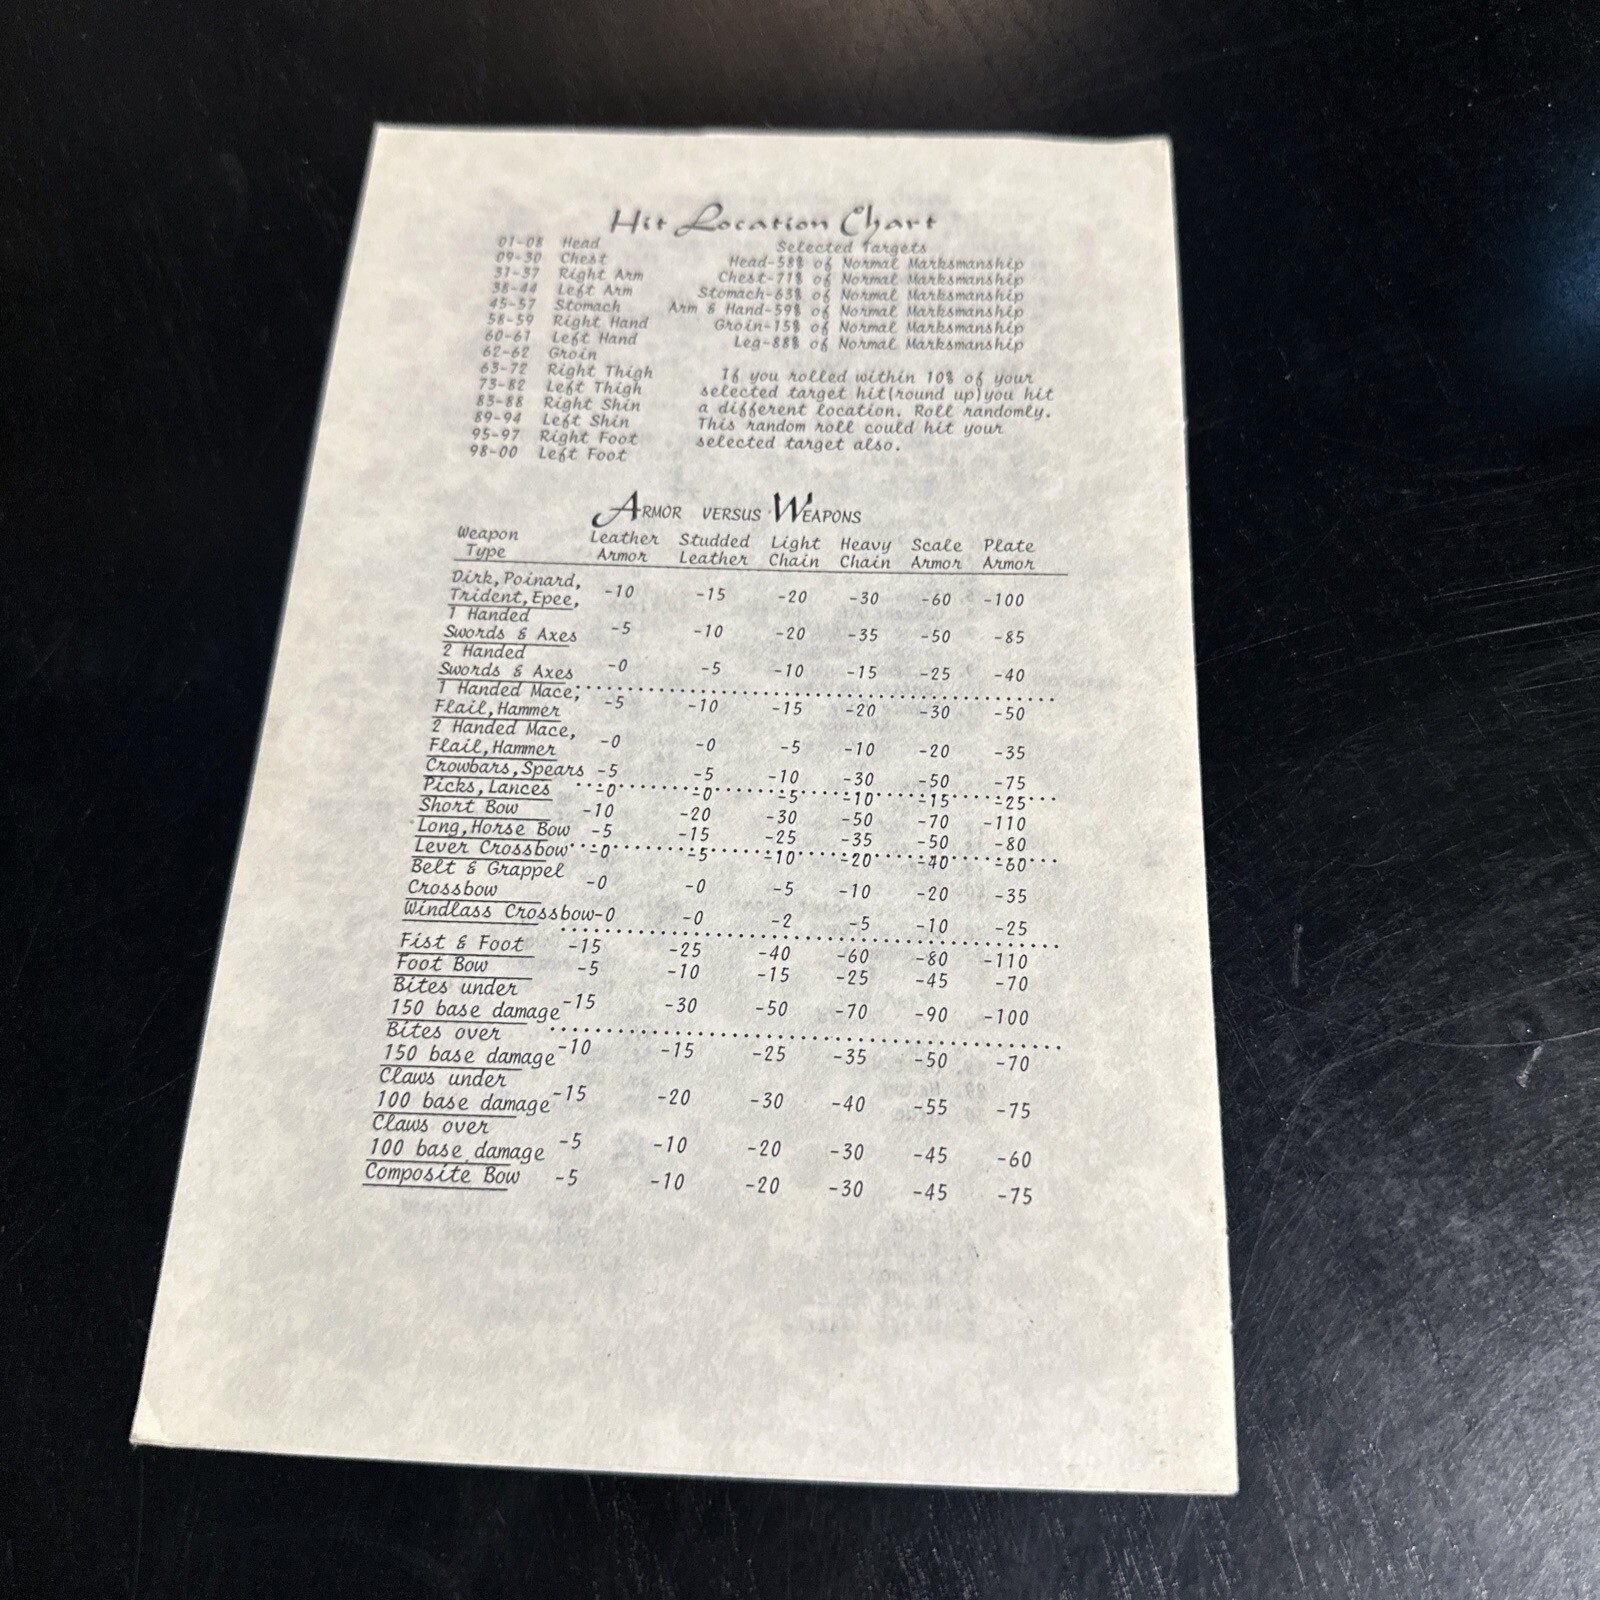 Hit Location Chart
01-08 Head
09-30 Chest
31-37 Right Arm
38-44 Left Arm
45-57 Stomach
58-59 Right Hand
60-61 Left Hand
62-62 Groin
63-72 Right Thigh
73-82 Left Thigh
83-88 Right Shin
89-94 Left Shin
95-97 Right Foot
98-00 Left Foot
Selected Targets
Head-58% of Normal Marksmanship
Chest-71% of Normal Marksmanship
Stomach-63% of Normal Marksmanship
Arm & Hand-59% of Normal Marksmanship
Groin-15% of Normal Marksmanship
Leg-88% of Normal Marksmanship
If you rolled within 10% of your
selected target hit(round up)you hit
a different location. Roll randomly.
This random roll could hit your
selected target also.
ARMOR VERSUS WEAPONS
Weapon Leather Studded Light Heavy Scale Plate
Type Armor Leather Chain Chain Armor Armor
Dirk, Poinard,
Trident, Epee, -10 -15 -20 -30 -60 -100
1 Handed
Swords & Axes -5 -10 -20 -35 -50 -85
2 Handed
Swords & Axes -0 -5 -10 -15 -25 -40
1 Handed Mace,
Flail, Hammer -5 -10 -15 -20 -30 -50
2 Handed Mace,
Flail, Hammer -0 -0 -5 -10 -20 -35
Crowbars, Spears -5 -5 -10 -30 -50 -75
Picks, Lances -0 -0 -5 -10 -15 -25
Short Bow -10 -20 -30 -50 -70 -110
Long, Horse Bow -5 -15 -25 -35 -50 -80
Lever Crossbow -0 -5 -10 -20 -40 -60
Belt & Grappel
Crossbow -0 -0 -5 -10 -20 -35
Windlass Crossbow -0 -0 -2 -5 -10 -25
Fist & Foot -15 -25 -40 -60 -80 -110
Foot Bow -5 -10 -15 -25 -45 -70
Bites under
150 base damage -15 -30 -50 -70 -90 -100
Bites over
150 base damage -10 -15 -25 -35 -50 -70
Claws under
100 base damage -15 -20 -30 -40 -55 -75
Claws over
100 base damage -5 -10 -20 -30 -45 -60
Composite Bow -5 -10 -20 -30 -45 -75